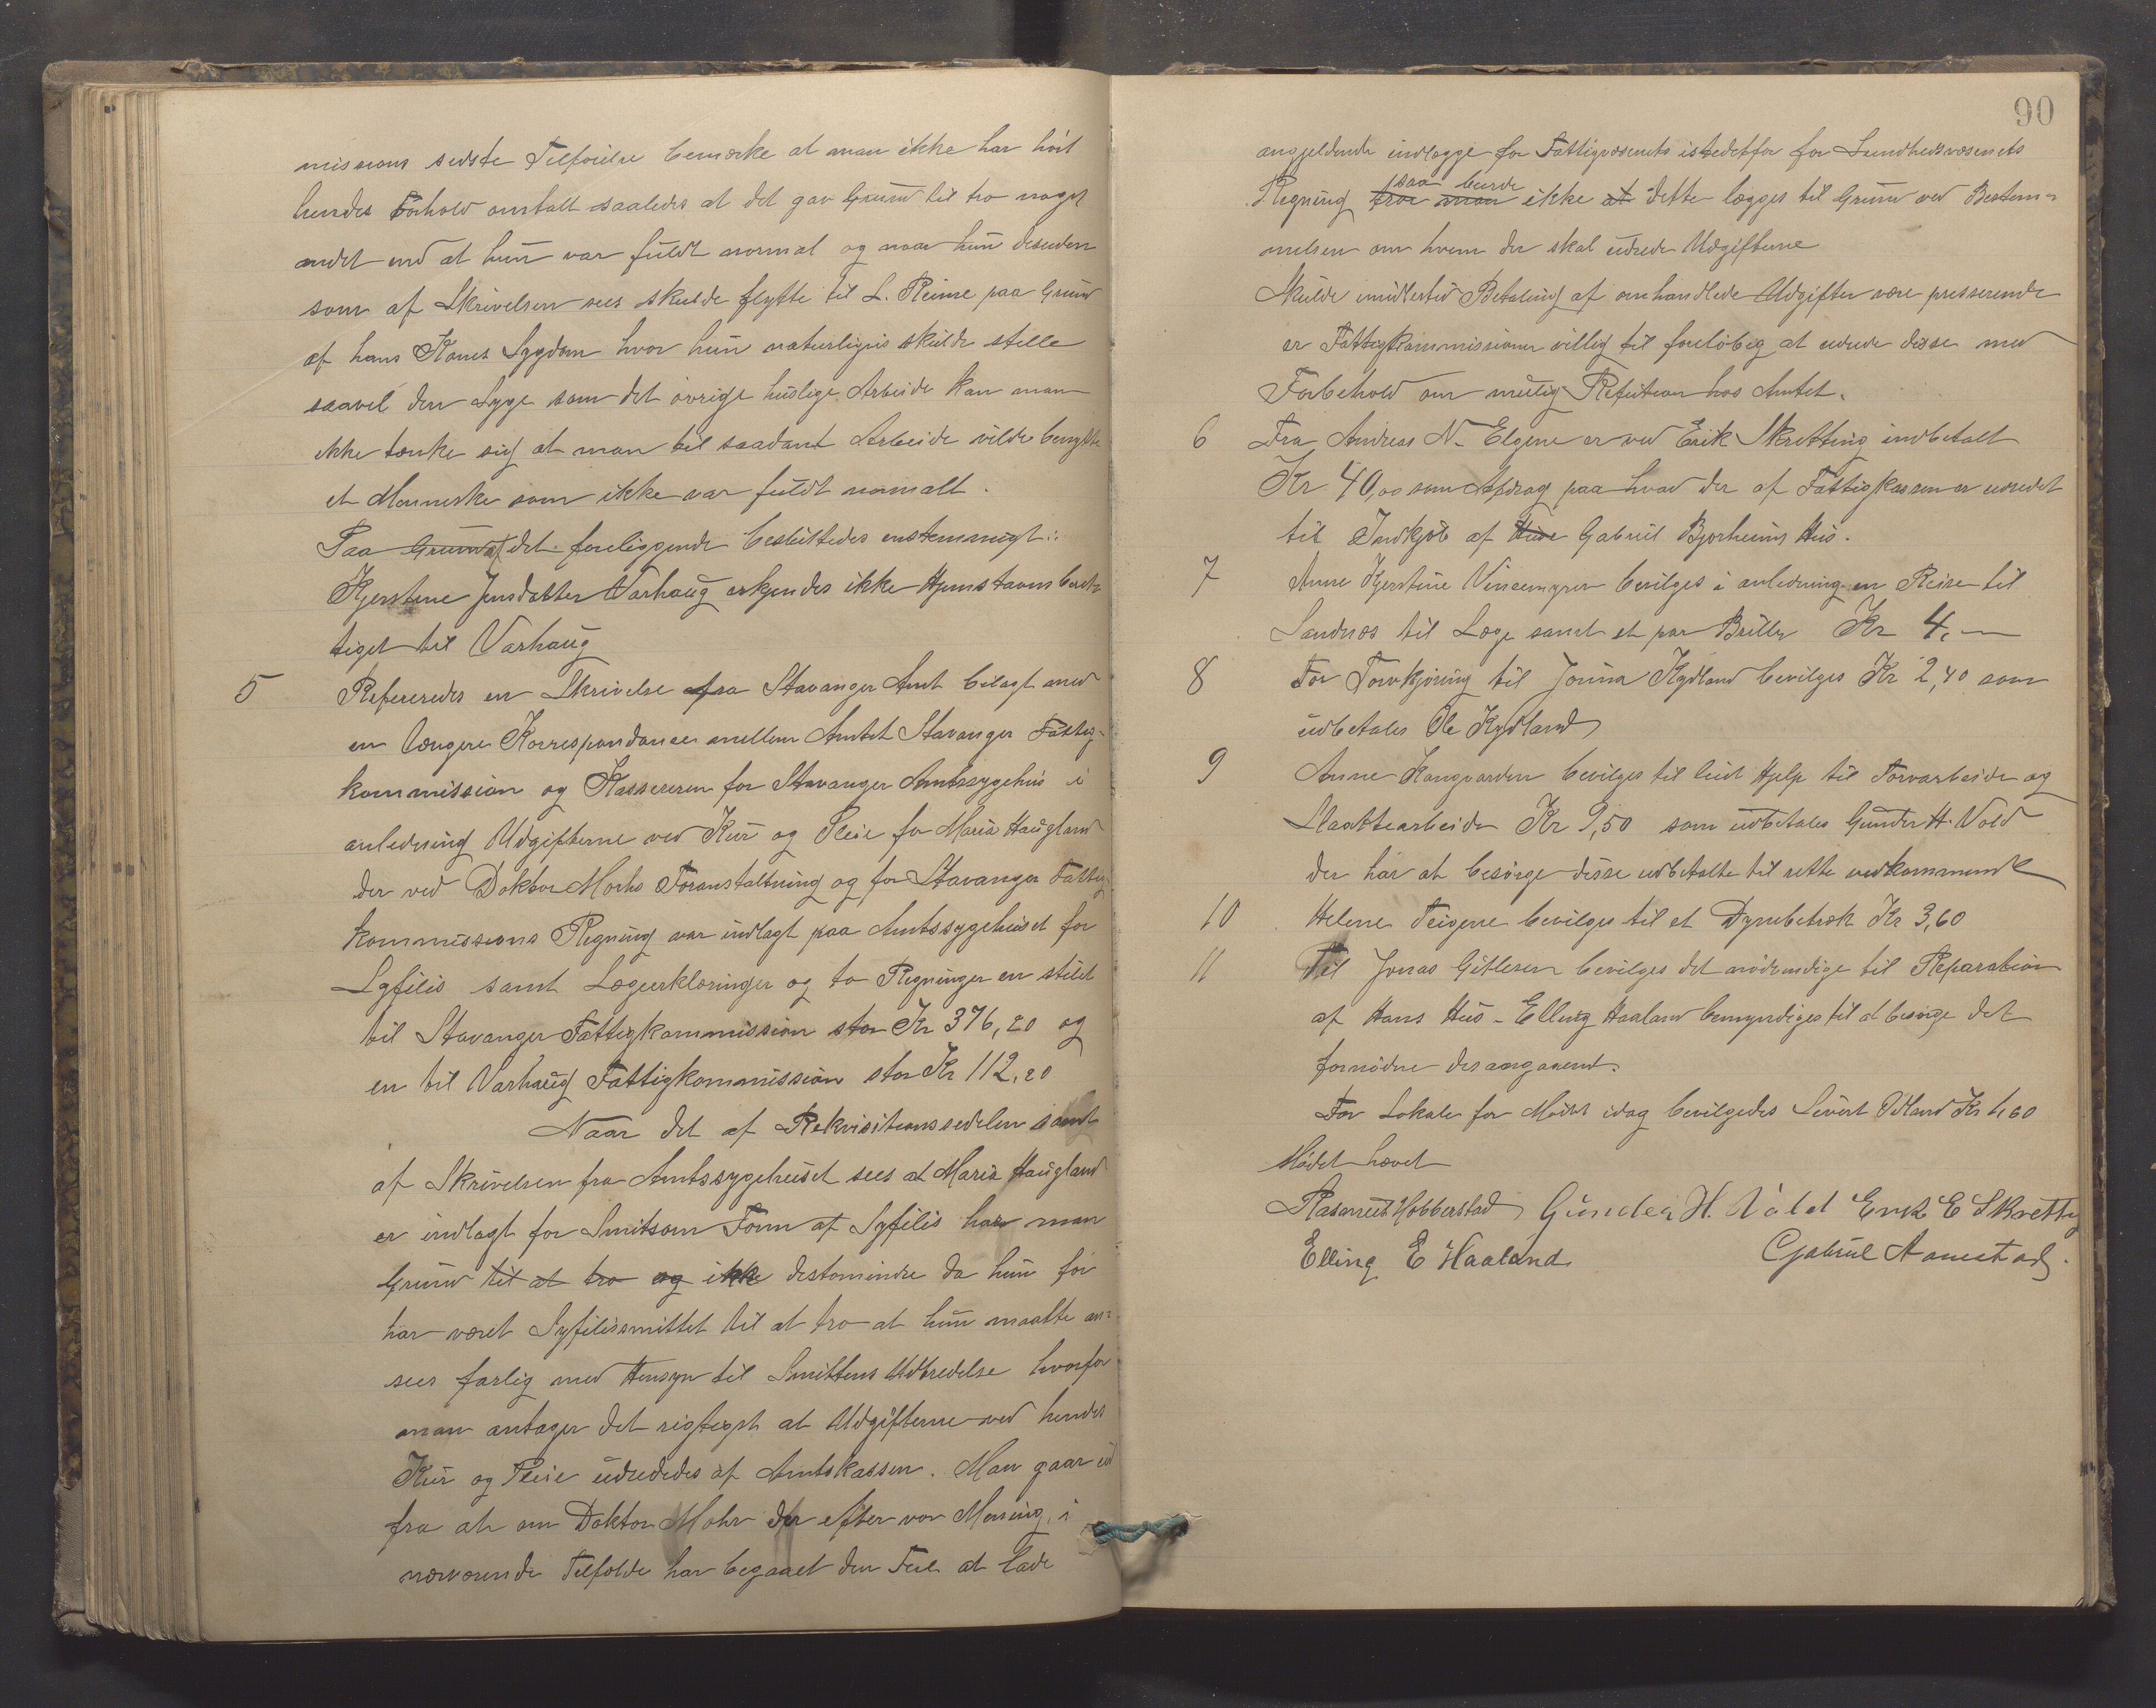 missions sidste Tilføielse bemærke at man ikke har hørt
hendes Forhold omtalt saaledes at det gav Grund til tro noget
andet end at hun var fuldt normal og naar hun desuden
som af Skrivelsen sees skulde flytte til L. Reime paa Grund
af hans Kones Sygdom hvor hun naturligvis skulde stelle
saavel den Syge som det øvrige huslige Arbeide kan man
ikke tænke sig at man til saadant Arbeide vilde benytte
et Menneske som ikke var fuldt normalt.
Paa Grund af det foreliggende besluttedes enstemmigt:
Kjerstine Jensdatter Varhaug erkjendes ikke Hjemstavnsberet-
tiget til Varhaug
5 Refereredes en Skrivelse fra Stavanger Amt bilagt med
en længere Korrespondance mellem Amtet Stavanger Fattig-
kommission og Kassereren for Stavanger Amtssygehus i
anledning Udgifterne ved Kur og Pleie for Maria Haugland
der ved Doktor Mohs Foranstaltning og for Stavanger Fattig
kommissions Regning var indlagt paa Amtssygehuset for
Syfilis samt Lægeerklæringer og to Regninger en stilet
til Stavanger Fattigkommission stor Kr 376,20 og
en til Varhaug Fattigkommission stor Kr 112,20
Naar det af Rekvisitionssedelen samt
af Skrivelsen fra Amtssygehuset sees at Maria Haugland
er indlagt for Smitsom Form af Syfilis har man
Grund til at tro og ikke destomindre da hun før
har været Syfilissmittet til at tro at hun maatte an-
sees farlig med Hensyn til Smittens Udbredelse hvorfor
man antager det rigtigst at Udgifterne ved hendes
Kur og Pleie udrededes af Amtskassen. Man gaar ud
fra at om Doktor Mohr der efter vor Mening i
nærværende Tilfælde har begaaet den Feil at lade
90
angjeldende indlægge for Fattigvæsenets istedetfor for Sundhedsvæsenets
saa burde
Regning tror man ikke at dette lægges til Grund ved Bestem-
melsen om hvem der skal udrede Udgifterne
Skulde imidlertid Betaling af omhandlede Udgifter være presserende
er Fattigkommissionen villig til foreløbig at udrede disse med
Forbehold om mulig Refusion hos Amtet.
6 Fra Andreas N. Elgene er ved Erik Skretting indbetalt
Kr 40,00 som Afdrag paa hvad der af Fattigkassen er udredet
til Indkjøb af Huse Gabriel Bjorheims Hus.
7 Anne Kjerstine Vinsemyren bevilges i anledning en Reise til
Sandnæs til Læge samt et par Briller Kr 4,—
8 For Torvkjøring til Jonna Kydland bevilges Kr 2,40 som
udbetales Ole Kydland
9 Anne Kongvarden bevilges til leiet Hjelp til Torvarbeide og
Slaattearbeide Kr 9,50 som udbetales Gunder H. Vold
der har at besørge disse udbetalte til rette vedkommende
10 Helene Teigene bevilges til et Dynebetræk Kr 3,60
11 Til Jonas Gitlesen bevilges det nødvendige til Reparation
af Hans Hus - Elling Haaland bemyndiges til at besørge det
fornødne desangaaende.
For Lokale for Mødet idag bevilgedes Sivert Odland Kr 1,60
Mødet hævet
Rasmus Hobberstad Gunder H. Vold Erik E Skretting
Elling E Haaland Gabriel Aanestad.